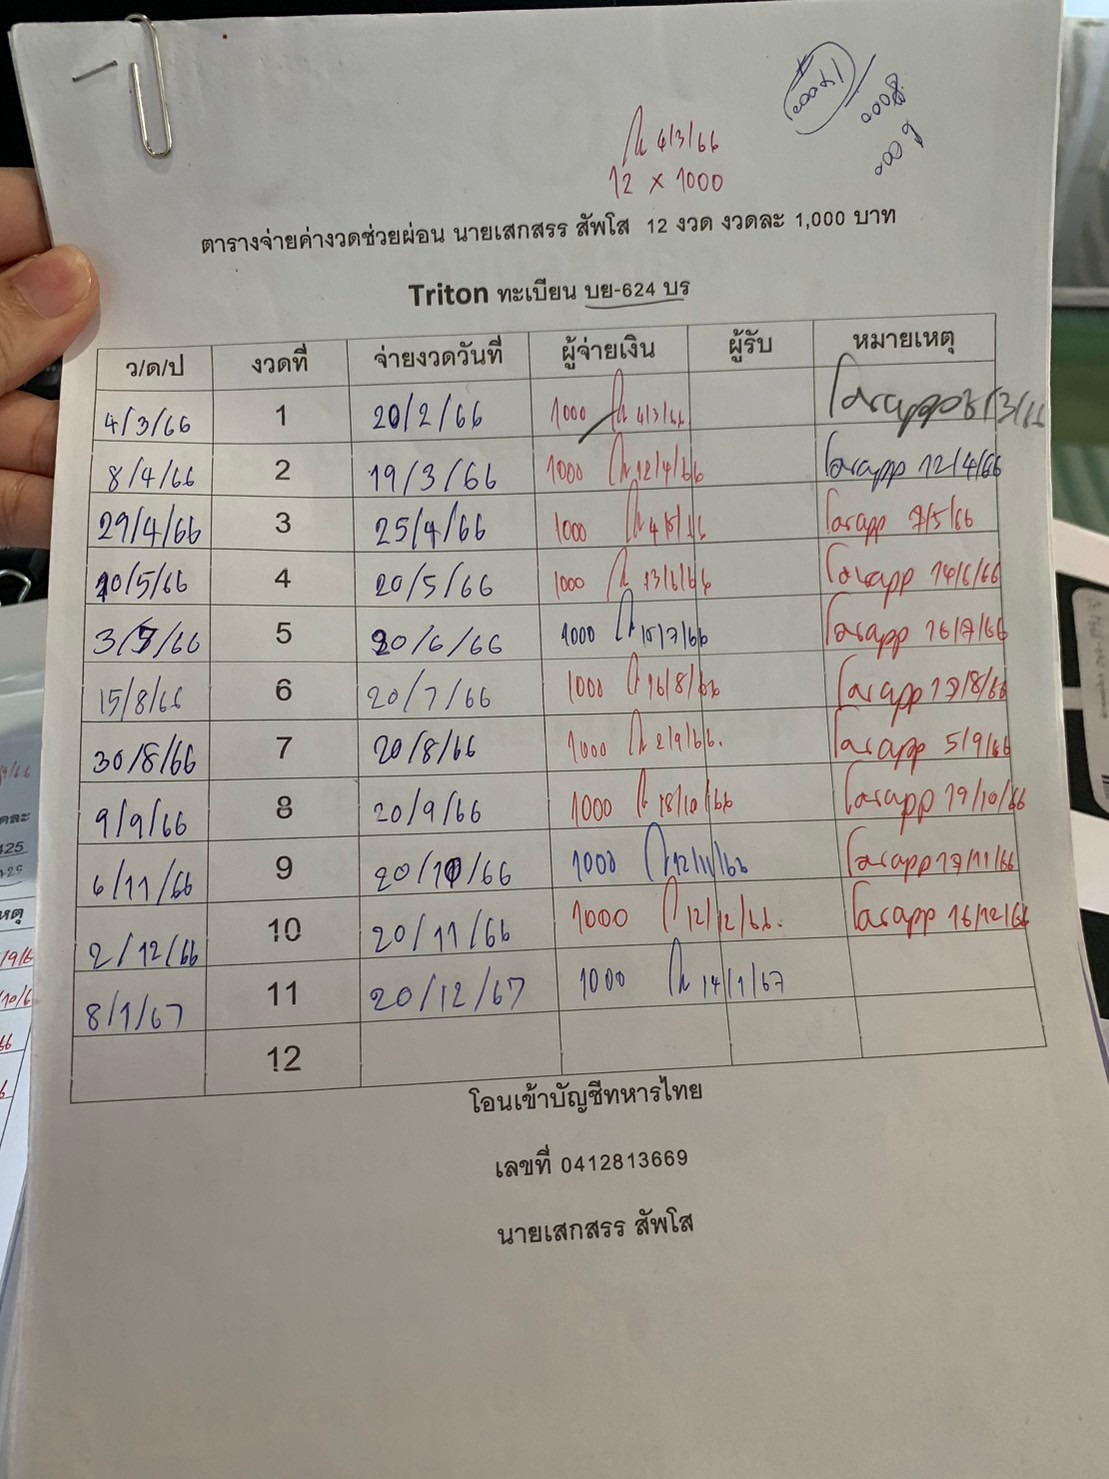 4/3/66
12 x 1000
ตารางจ่ายค่างวดช่วยผ่อน นายเสกสรร สัพโส 12 งวด งวดละ 1,000 บาท
Triton ทะเบียน บย-624 บร
ว/ด/ป งวดที่ จ่ายงวดวันที่ ผู้จ่ายเงิน ผู้รับ หมายเหตุ
4/3/66 1 20/2/66 1000 4/3/66
8/4/66 2 19/3/66 1000 12/4/66 โอนapp 12/4/66
29/4/66 3 25/4/66 1000 โอนapp 7/5/66
10/5/66 4 20/5/66 1000 13/6/66 โอนapp 14/6/66
3/7/66 5 20/6/66 1000 15/7/66 โอนapp 16/7/66
15/8/66 6 20/7/66 1000 16/8/66 โอนapp 17/8/66
30/8/66 7 20/8/66 1000 2/9/66. โอนapp 5/9/66
9/9/66 8 20/9/66 1000 18/10/66 โอนapp 19/10/66
6/11/66 9 20/10/66 1000 12/11/66 โอนapp 17/11/66
2/12/66 10 20/11/66 1000 12/12/66. โอนapp 16/12/66
8/1/67 11 20/12/67 1000 14/1/67
12
โอนเข้าบัญชีทหารไทย
เลขที่ 0412813669
นายเสกสรร สัพโส